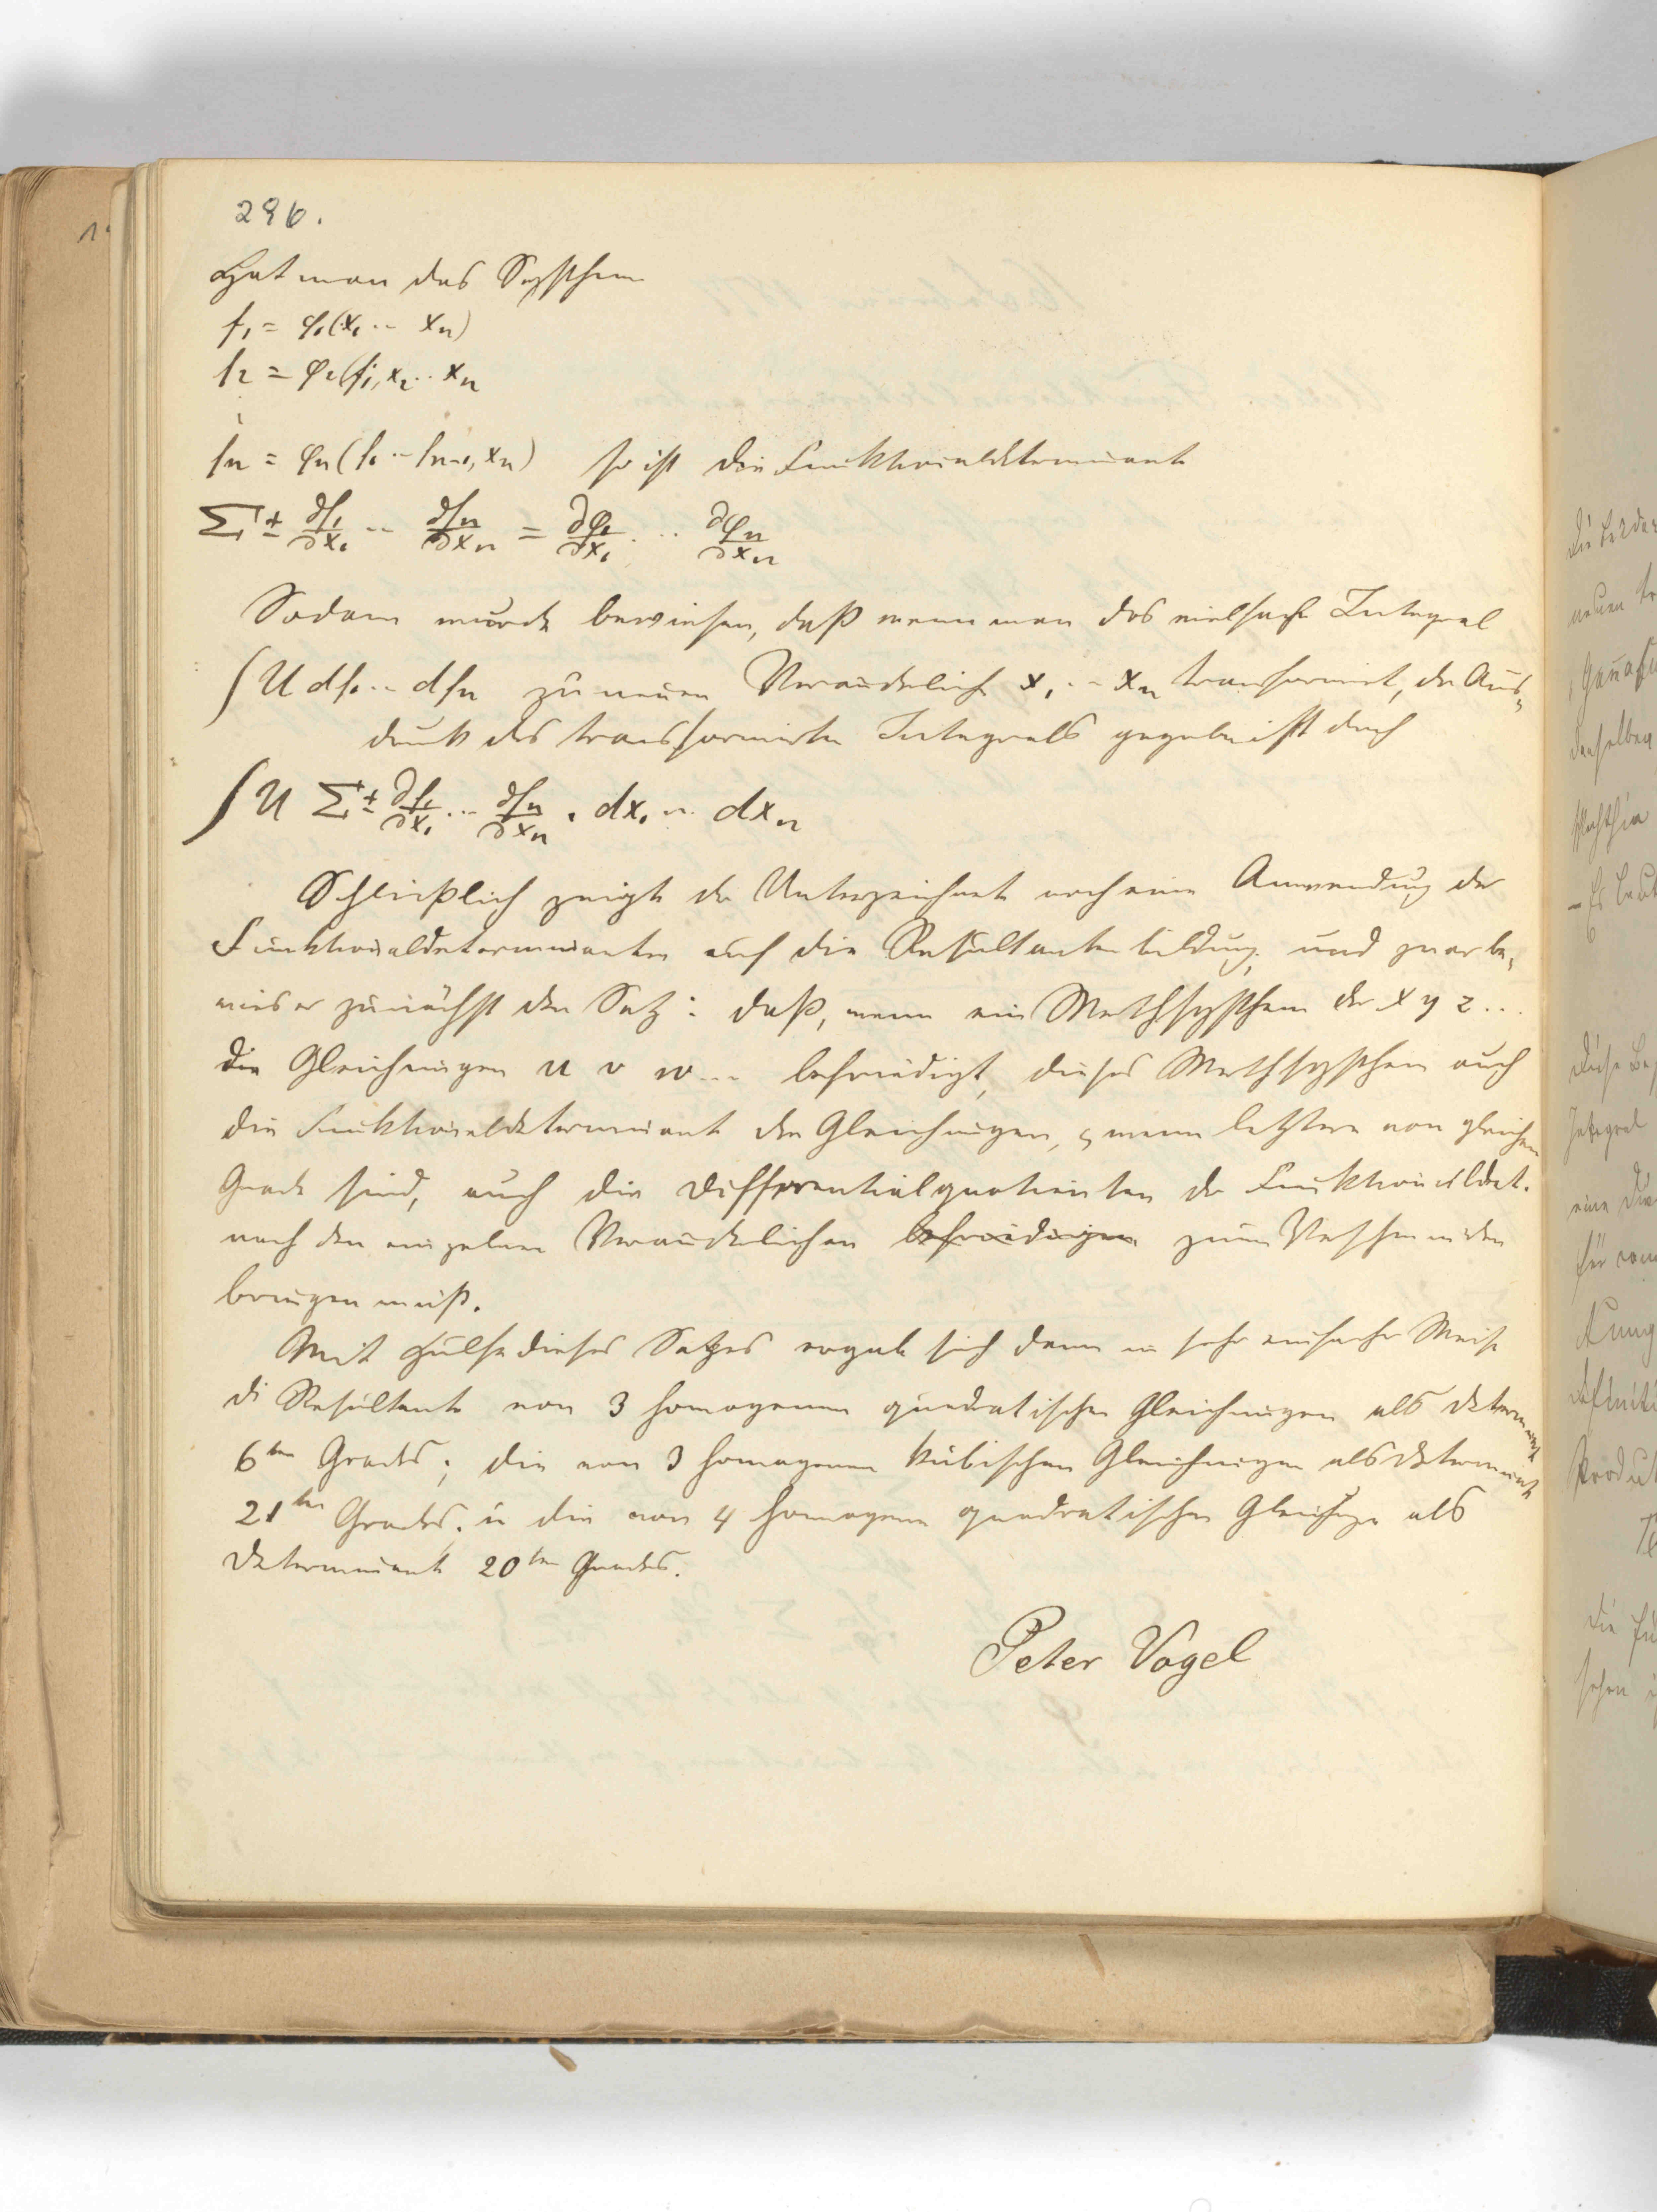 296.
Hat man das System
f₁ = φ₁(x₁ ·· xₙ)
f₂ = φ₂(f₁, x₂ ·· xₙ
fₙ = φₙ(f₁ ·· fₙ₋₁, xₙ) so ist die Funktionaldeterminante
Σ ± ∂f₁/∂x₁ ·· ∂fₙ/∂xₙ = ∂φ₁/∂x₁ ·· ∂φₙ/∂xₙ
Sodann wurde bewiesen, daß wenn man das vielfache Integral
∫ U df₁ ·· dfₙ zu neuen Veränderlichen x₁ ·· xₙ transformirt, der Aus-
druck des transformirten Integrals gegeben ist durch
∫ U Σ ± ∂f₁/∂x₁ ·· ∂fₙ/∂xₙ · dx₁ ·· dxₙ
Schließlich zeigte der Unterzeichnete noch eine Anwendung der
Funktionaldeterminanten auf die Resultantenbildung, und zwar be-
wies er zunächst den Satz: daß, wenn ein Werthsystem der x y z ...
die Gleichungen u v w ... befriedigt, dieses Werthsystem auch
die Funktionaldeterminante der Gleichungen, & wenn letztere von gleichem
Grade sind, auch die Differentialquotienten der Funktionaldet.
nach den einzelnen Veränderlichen befriedigen zum Verschwinden
bringen muß.
Mit Hülfe dieses Satzes ergab sich dann in sehr einfacher Weise
di Resultante von 3 homogenen quadratischen Gleichungen als Determinante
6ten Grades; die von 3 homogenen kubischen Gleichungen als Determinante
21ten Grades. u die von 4 homogenen quadratischen Gleichungen als
Determinante 20ten Grades.
Peter Vogel